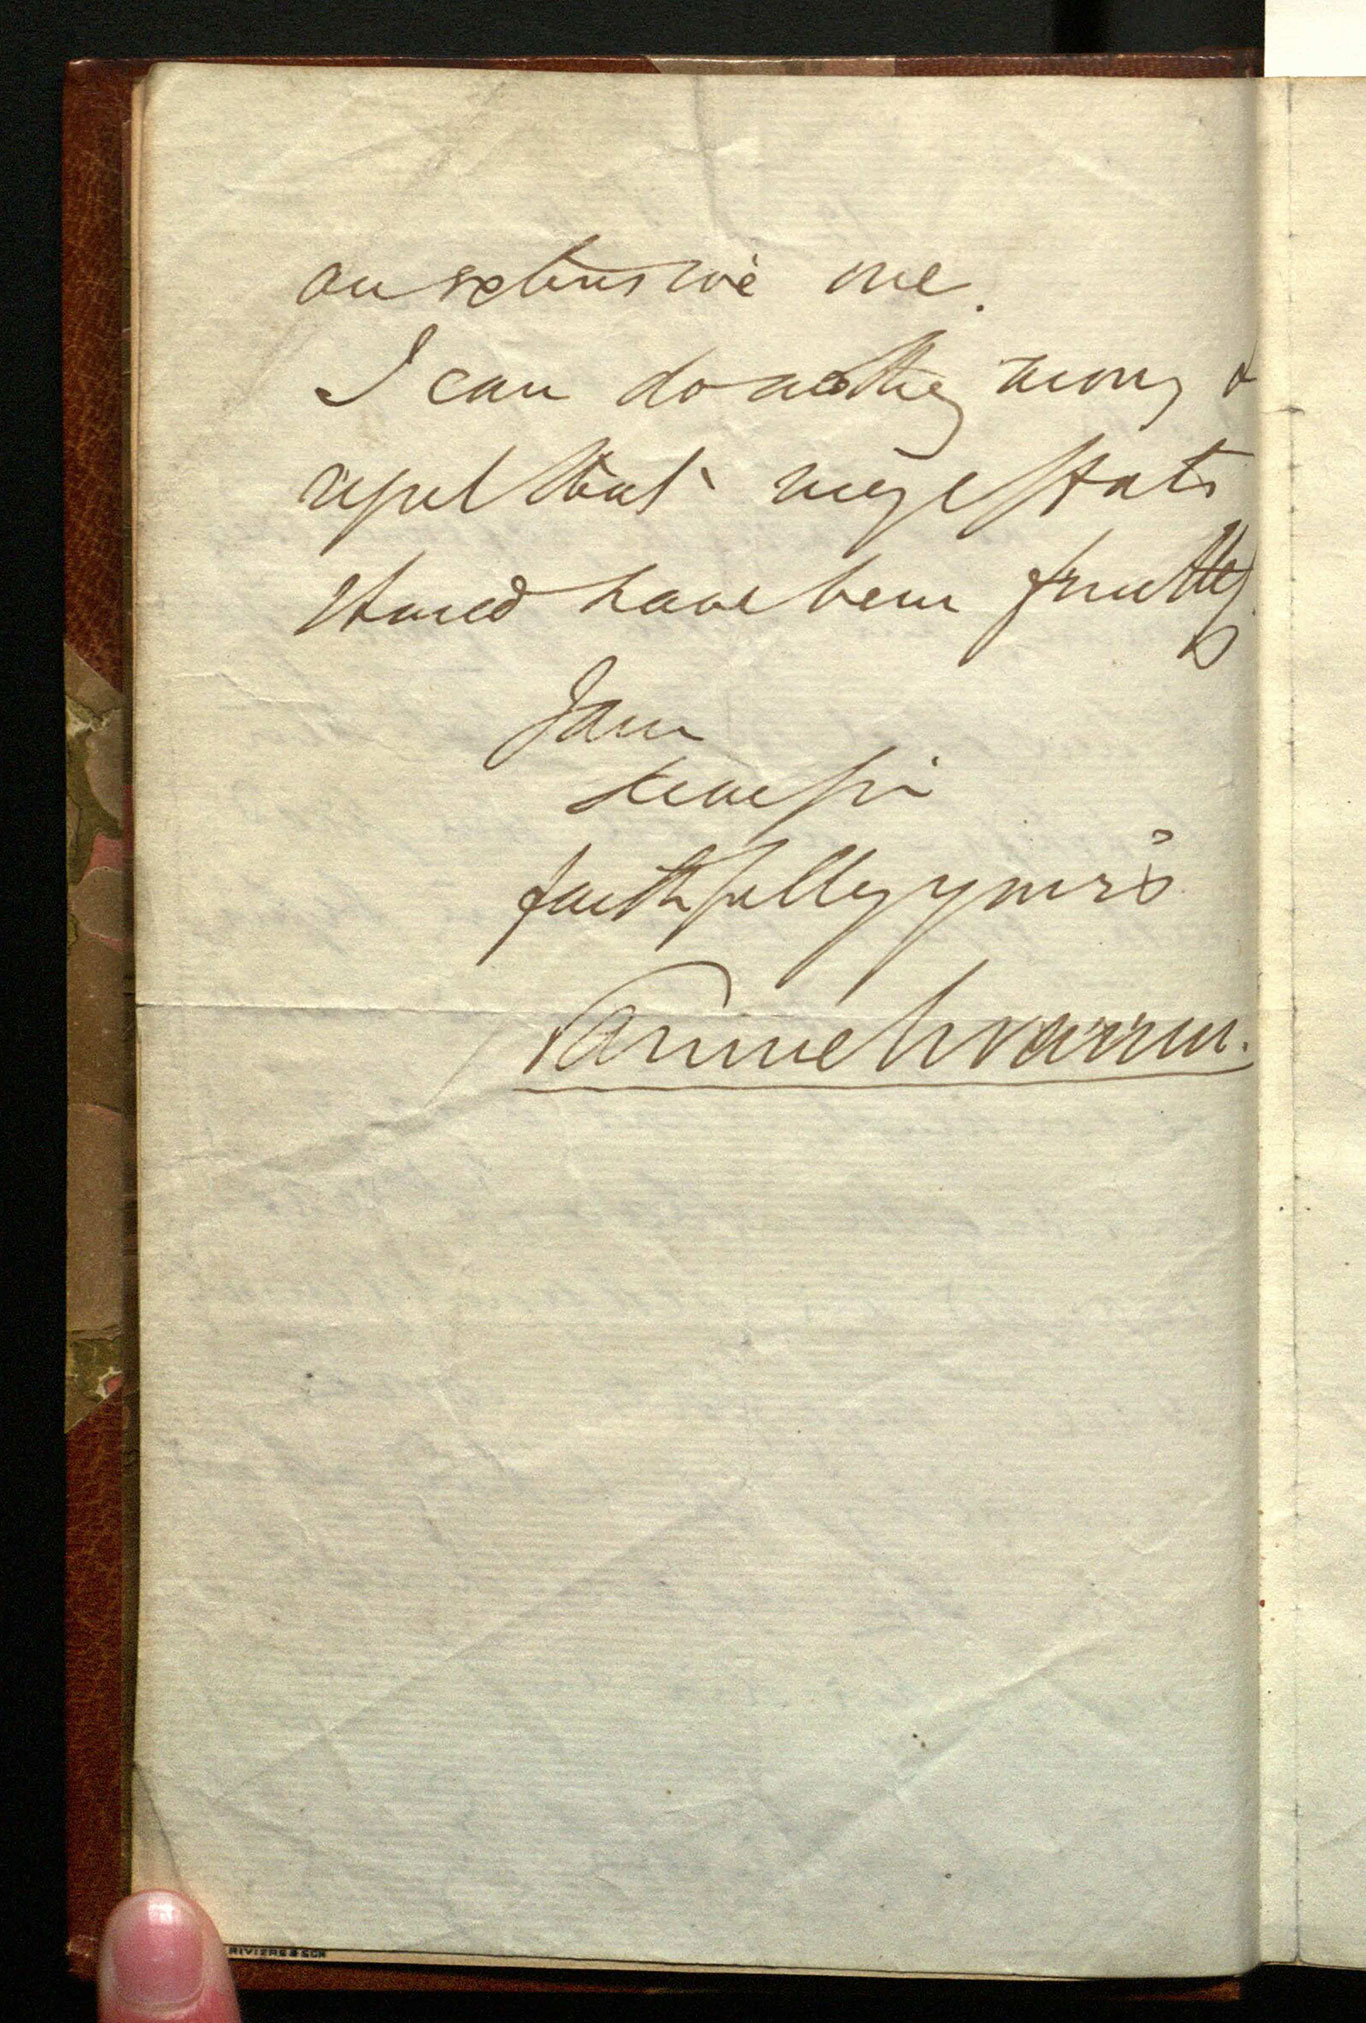 an extensive one.
I can do nothing more, &
regret that my efforts
should have been fruitless
I am
dear sir
faithfully yours
Samuel Warren.
RIVIERE & SON